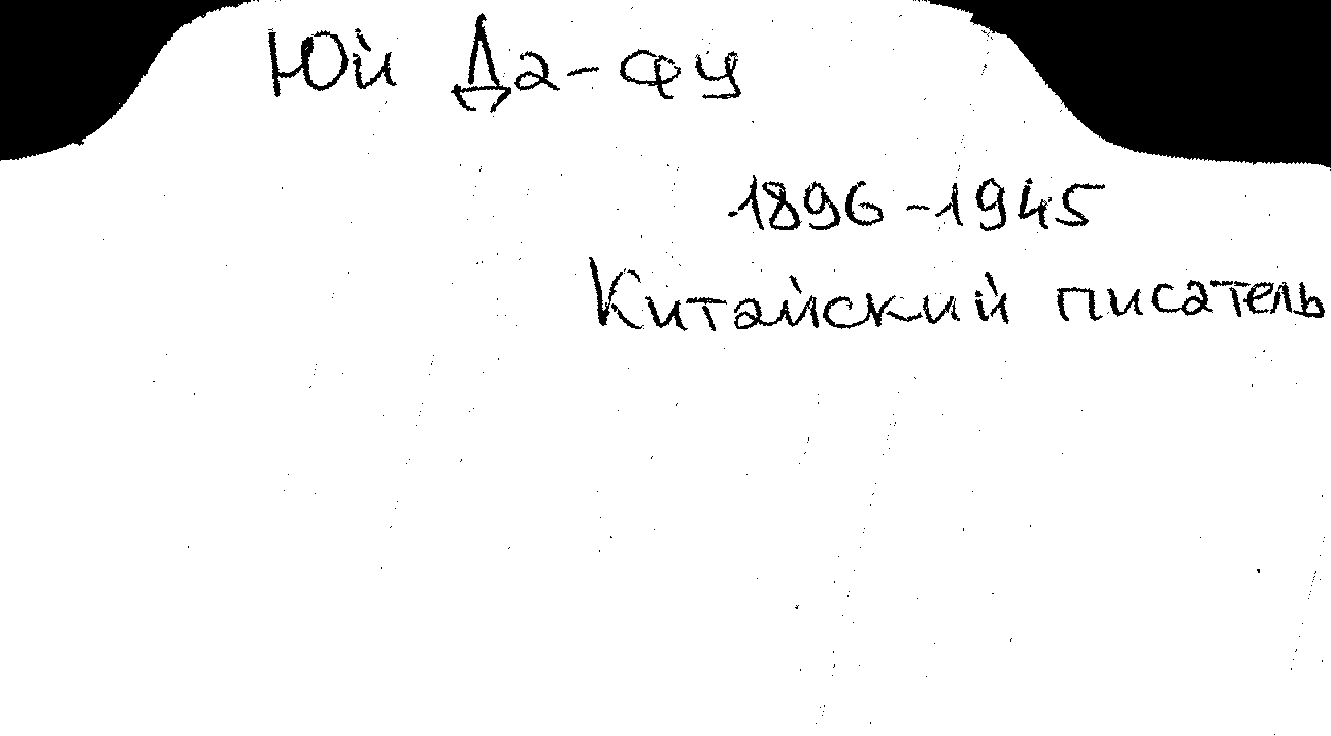 Юй Да-фу
1896-1945
Китайский писатель